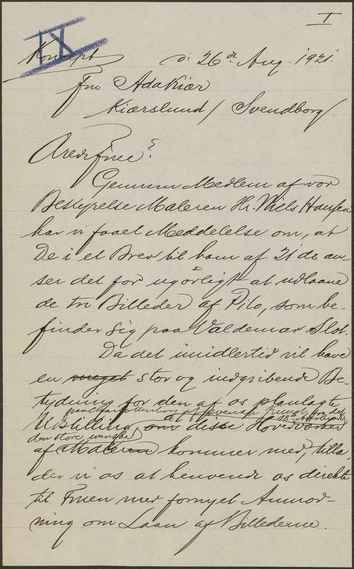 I
IX
Koncept
d: 26de Aug. 1921.
Fru Ada Kiær
Kiærslund / Svendborg /
Ærede Frue!
Gennem Medlem af vor
Bestyrelse Maleren Hr. Niels Hansen
har vi faaet Meddelelse om, at
De i et Brev til ham af 21de an-
ser det for ugørligt at udlaane
de tre Billeder af Pilo, som be-
finder sig paa Valdemar Slot.
Da det imidlertid vil have
en meget stor og indgribende Be-
tydning for den af os planlagte
af svensk Kunst fra det 18de
Udstilling, om disse Hovedværker
den store
af Maleren kommer med, tilla-
der vi os at henvende os direkte
til Fruen med fornyet Anmod-
ning om Laan af Billederne.